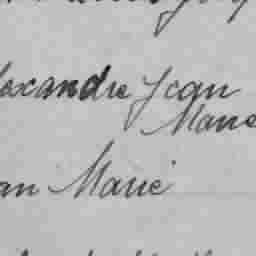 lexandre Jean
Marie
an Marie